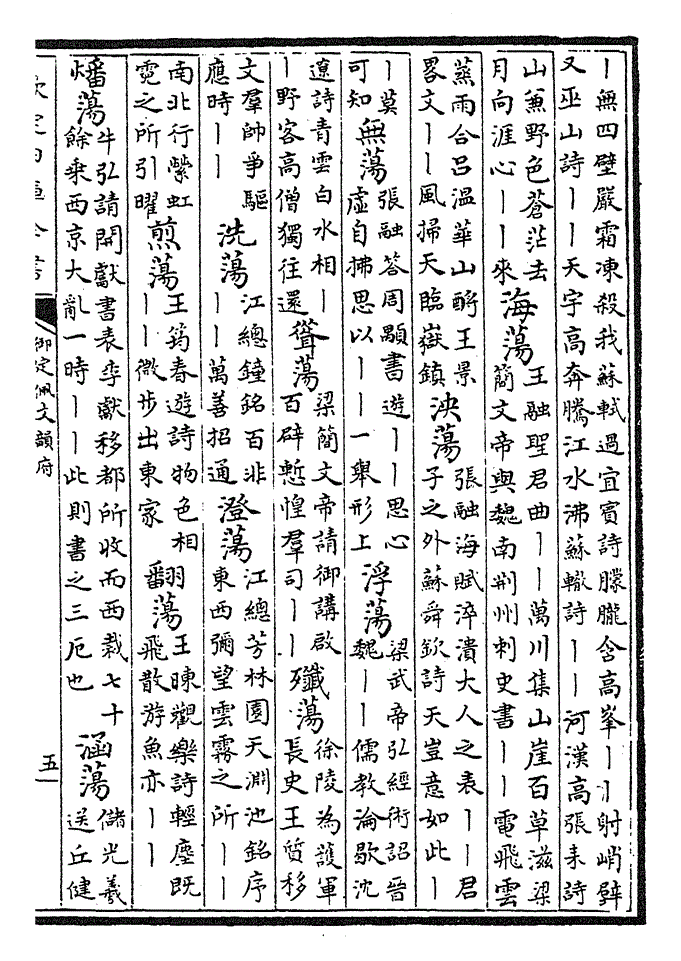 ｜無四壁嚴霜凍殺我蘇軾過宜賓詩朦朧含高峯｜｜射峭壁
又巫山詩｜｜天宇高奔騰江水沸蘇轍詩｜｜河漢高張耒詩
山兼野色蒼茫去
月向涯心｜｜來
海蕩
王融聖君曲｜｜萬川集山崖百草滋梁
簡文帝與魏南荆州刺史書｜｜電飛雲
蒸雨合呂溫華山酹王景
畧文｜｜風掃天臨嶽鎮
泱蕩
張融海賦淬潰大人之表｜｜君
子之外蘇舜欽詩天豈意如此｜
｜莫
可知
無蕩
張融答周顒書遊｜｜思心
虛自拂思以｜｜一舉形上
浮蕩
梁武帝弘經術詔晉
魏｜｜儒教淪歇沈
遼詩青雲白水相｜
｜野客高僧獨往還
聳蕩
梁簡文帝請御講啟
百辟慙惶羣司｜｜
殲蕩
徐陵為護軍
長史王質移
文羣帥爭驅
應時｜｜
洗蕩
江總鐘銘百非
｜｜萬善招通
澄蕩
江總芳林園天淵池銘序
東西彌望雲霧之所｜｜
南北行縈虹
霓之所引曜
煎蕩
王筠春遊詩物色相
｜｜微步出東家
翻蕩
王暕觀樂詩輕塵既
飛散游魚亦｜｜
燔蕩
牛弘請開獻書表孝獻移都所收而西裁七十
餘乗西京大亂一時｜｜此則書之三厄也
涵蕩
儲光羲
送丘健
欽定四庫全書
御定佩文韻府
五一